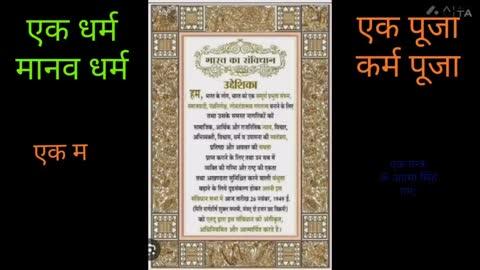 एक धर्म
मानव धर्म
एक म
भारत का संविधान
उद्देशिका
हम, भारत के लोग, भारत को एक सम्पूर्ण प्रभुत्व सम्पन्न,
समाजवादी, पंथनिरपेक्ष, लोकतंत्रात्मक गणराज्य बनाने के लिए
तथा उसके समस्त नागरिकों को
सामाजिक, आर्थिक और राजनैतिक न्याय, विचार,
अभिव्यक्ति, विश्वास, धर्म व उपासना की स्वतंत्रता,
प्रतिष्ठा और अवसर की समता
प्राप्त कराने के लिए तथा उन सब में
व्यक्ति की गरिमा और राष्ट्र की एकता
तथा अखण्डता सुनिश्चित करने वाली बंधुता
बढ़ाने के लिये दृढ़संकल्प होकर अपनी इस
संविधान सभा में आज तारीख 26 नवम्बर, 1949 ई.
को एतद् द्वारा इस संविधान को अंगीकृत,
अधिनियमित और आत्मार्पित करते हैं।
एक पूजा
कर्म पूजा